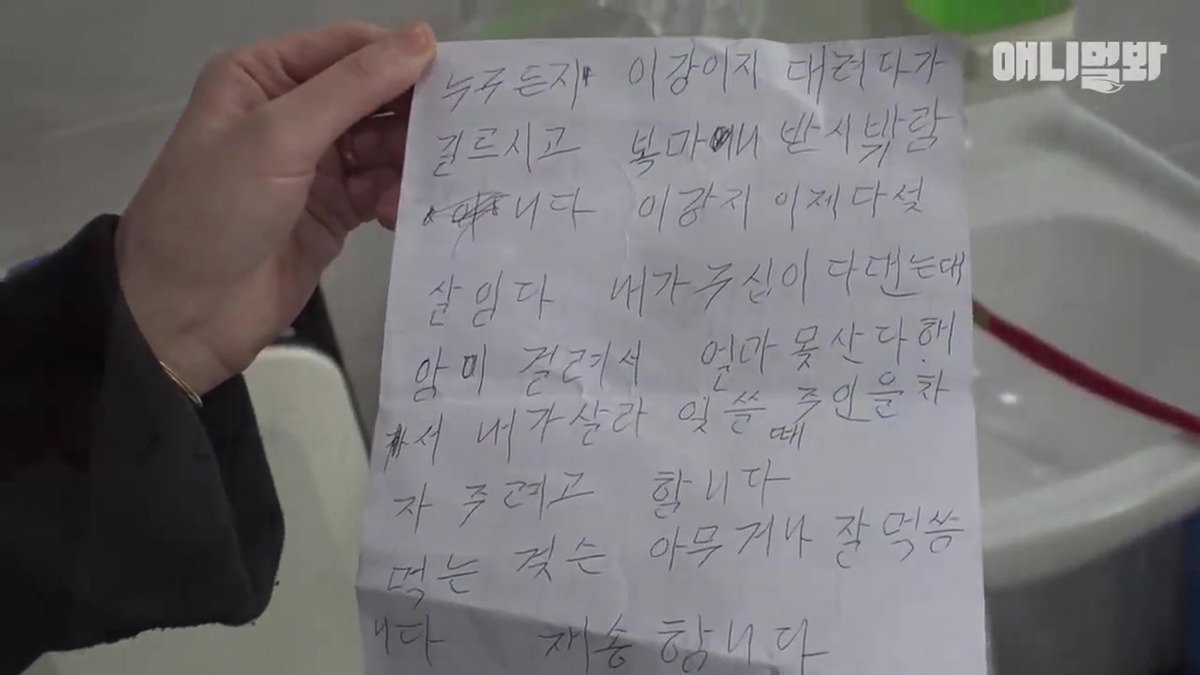 애니멀봐
누구든지 이강이지 대려다가
길르시고 복마애니 받시밖람
니다 이강지 이제다섯
살임다 내가 주십이 다댄는대
암미 걸려서 얼마 못산다해
서 내가살라 잇쓸 때 주인을차
자 주려고 함니다
먹는 것슨 아무거나 잘먹씀
니다 재송함니다